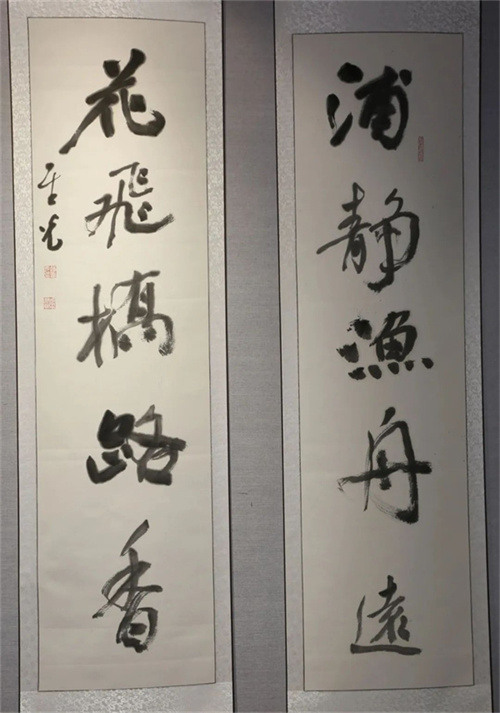 浦静漁舟遠
花飛橋路香